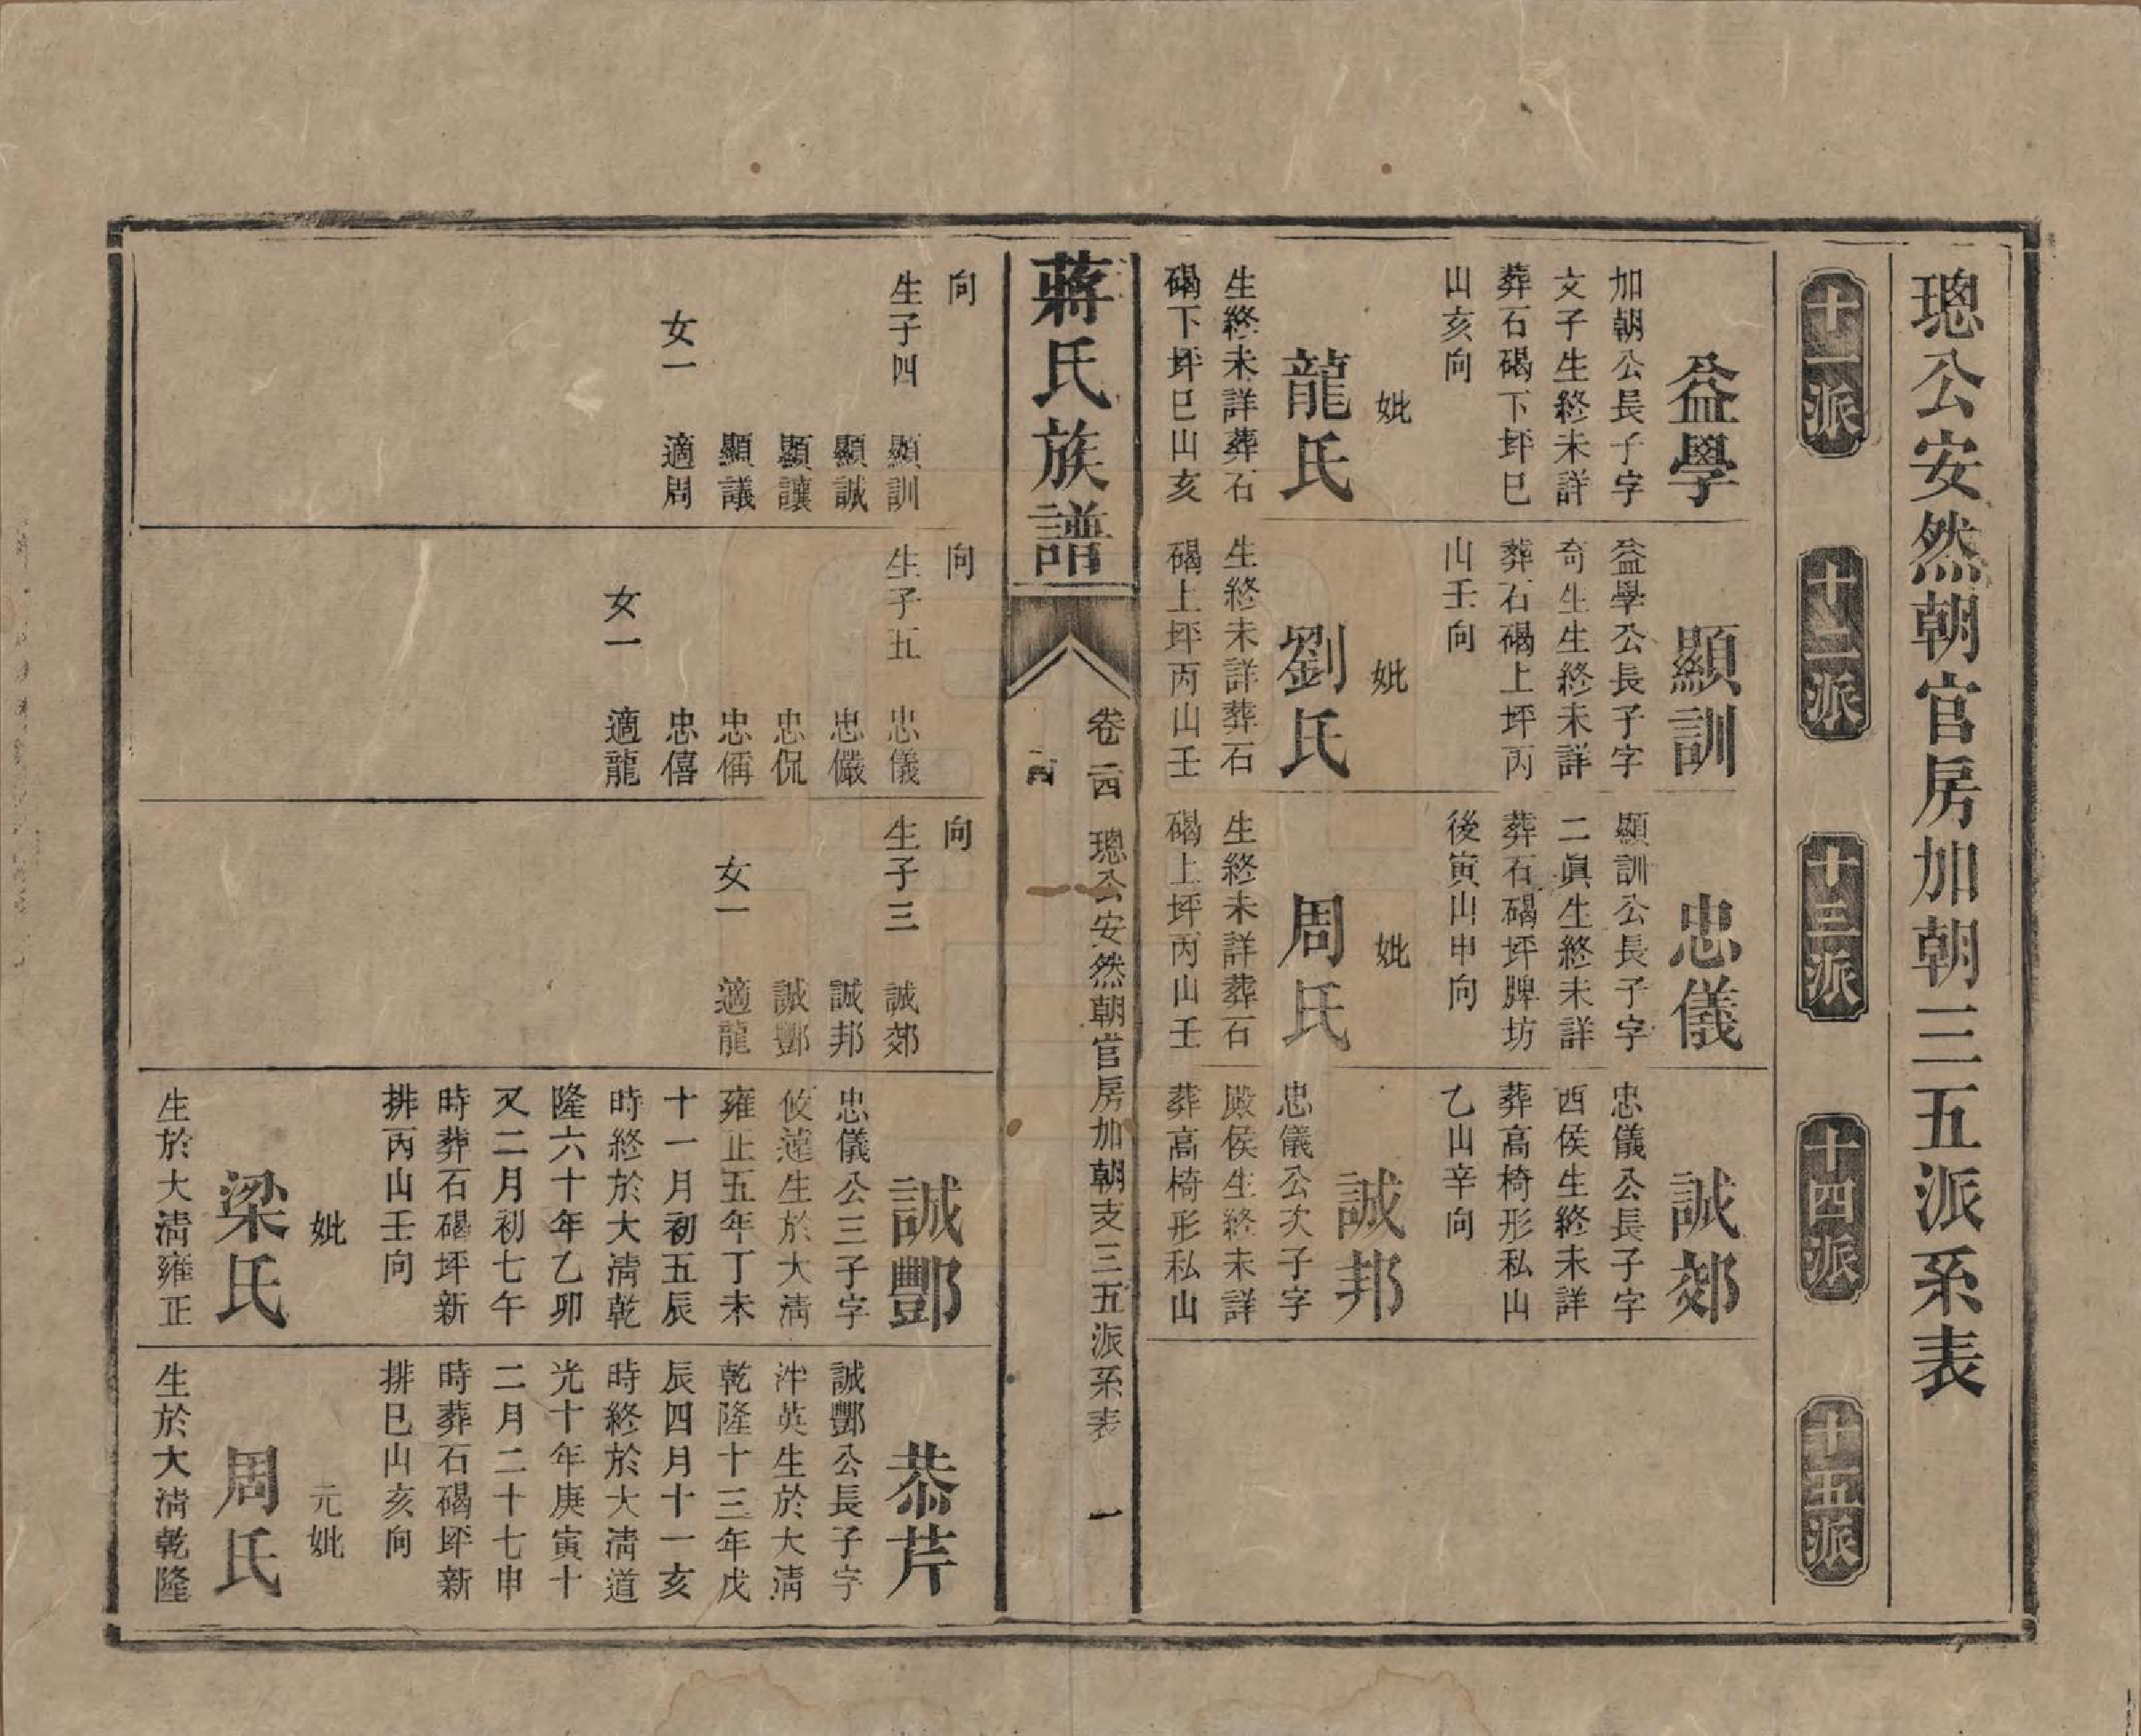 璁公安然朝官房加朝三五派系表
十一派
十二派
十三派
十四派
十五派
益學
加朝公長子字
文子生終未詳
葬石碣下坪巳
山亥向
妣
龍氏
生終未詳葬石
碣下坪巳山亥
顯訓
益學公長子字
奇生生終未詳
葬石碣上坪丙
山壬向
妣
劉氏
生終未詳葬石
碣上坪丙山壬
忠儀
顯訓公長子字
二眞生終未詳
葬石碣坪牌坊
後寅山申向
妣
周氏
生終未詳葬石
碣上坪丙山壬
誠郊
忠儀公長子字
西侯生終未詳
葬高椅形私山
乙山辛向
誠邦
忠儀公次子字
殿侯生終未詳
葬高椅形私山
蔣氏族譜
卷
璁公安然朝官房加朝支三五派系表
一
向
生子四
顯訓
顯誠
顯讓
顯議
女一
適周
向
生子五
忠儀
忠儼
忠侃
忠偁
忠僖
女一
適龍
向
生子三
誠郊
誠邦
誠酆
女一
適龍
誠酆
忠儀公三子字
攸遠生於大淸
雍正五年丁未
十一月初五辰
時終於大淸乾
隆六十年乙卯
又二月初七午
時葬石碣坪新
排丙山壬向
妣
梁氏
生於大淸雍正
恭芹
誠酆公長子字
泮英生於大淸
乾隆十三年戊
辰四月十一亥
時終於大淸道
光十年庚寅十
二月二十七申
時葬石碣坪新
排巳山亥向
元妣
周氏
生於大淸乾隆